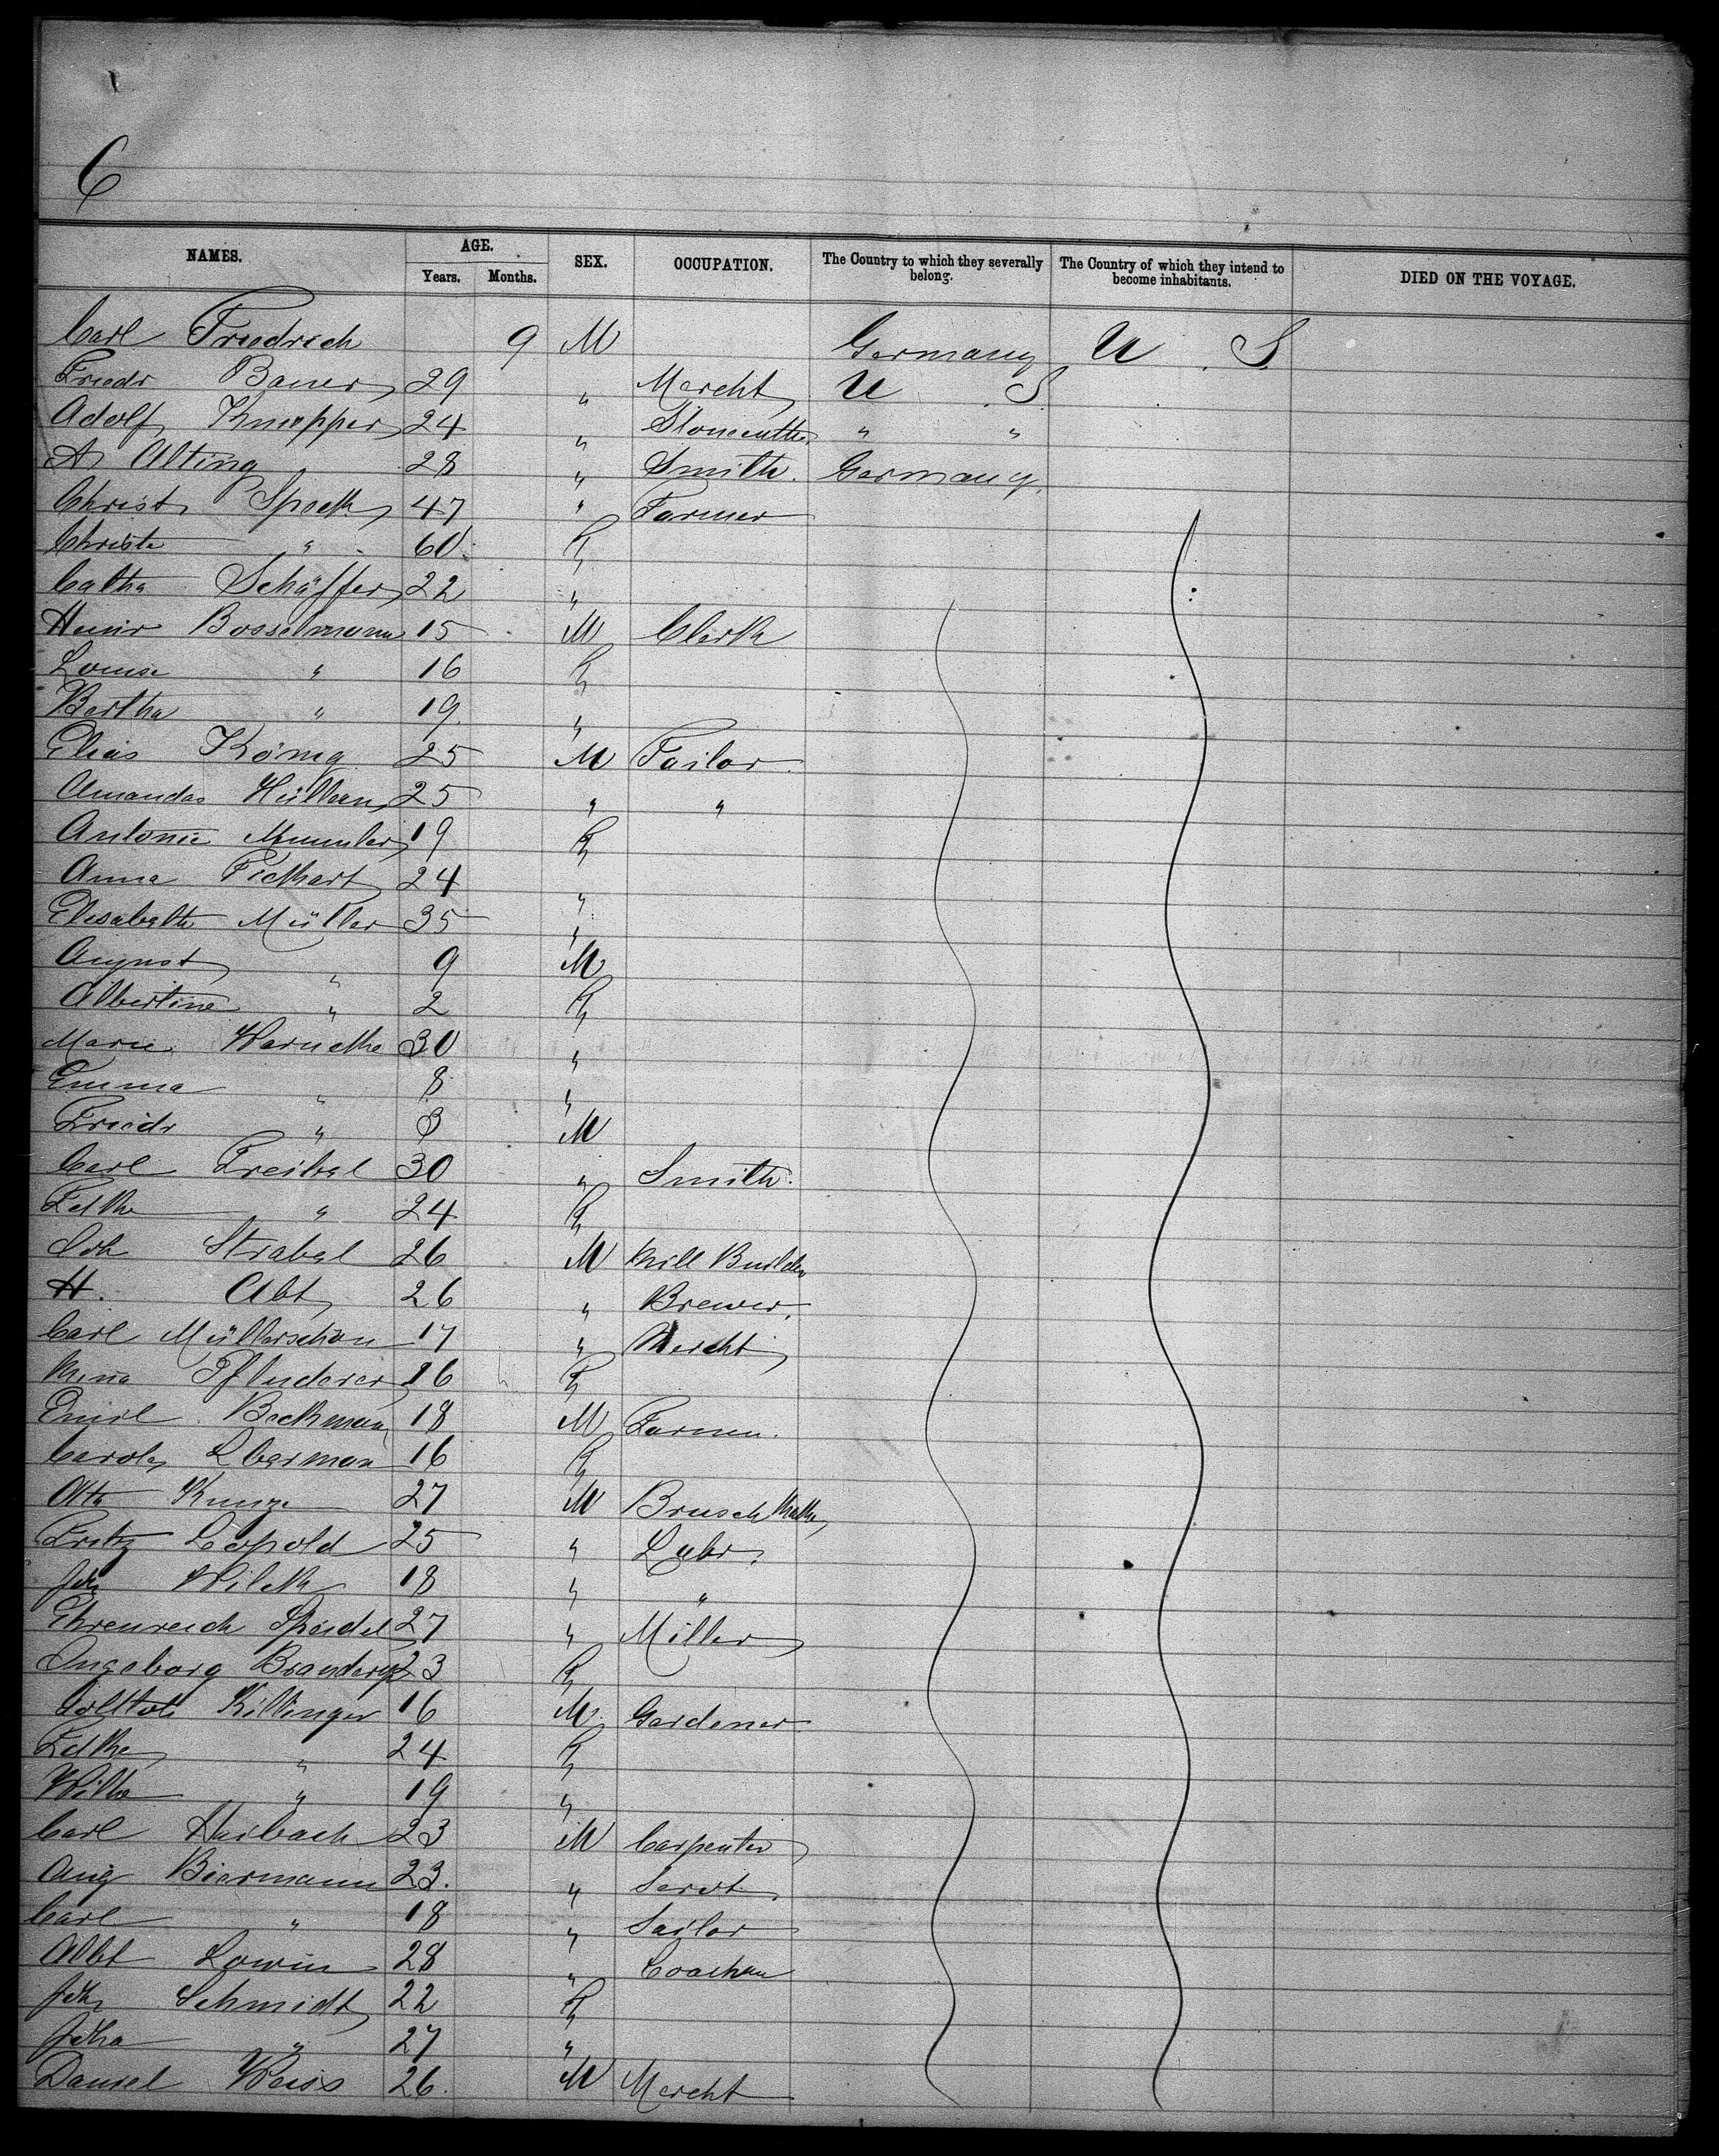 6
NAMES. AGE. SEX. OCCUPATION. The Country to which they severally belong. The Country of which they intend to become inhabitants. DIED ON THE VOYAGE.
Years. Months.
Carl Friedrich 9 M Germany U S
Friedr Bauer 29 " Mercht U S
Adolf Knepper 24 " Stonecutter " "
A Alting 28 " Smith. Germany.
Christ Speck 47 " Farmer
Christe " 60 F
Catha Schäffer 22 "
Heinr Bosselmann 15 M Clerk
Louise " 16 F
Bertha " 19 "
Elias König 25 M Tailor
Amandas 25 " "
Antonie Mummler 19 F
Anna Fickhart 24 "
Elisabeth Müller 35 "
August " 9 M
Albertine " 2 F
Marie Warnecke 30 "
Emma " 8 "
Friedr " 3 M
Carl Freibel 30 " Smith.
" 24 F
Joh Strabel 26 M Mill Builder
H. Abt 26 " Brewer.
Carl Müllerschön 17 " Mercht
Mina Pfluderer 16 F
Emil Beckmann 18 M Farmer.
Carol. 16 F
Otto Kunze 27 M Brusch Mak
Fritz Leopold 25 " Labr.
Joh 18 " "
Ehrenreich Speidel 27 " Miller
Ingeborg Branderup 23 F
Gottlob Killinger 16 M Gardener
" 24 F
Wilhe " 19 "
Carl Haibach 23 M Carpenter
Aug Biermann 23. " Servt.
Carl " 18 " Sailor
Albt Lowin 28 " Coachm
Joh Schmidt 22 F
Joha " 27 "
Daniel Weiss 26. M Mercht